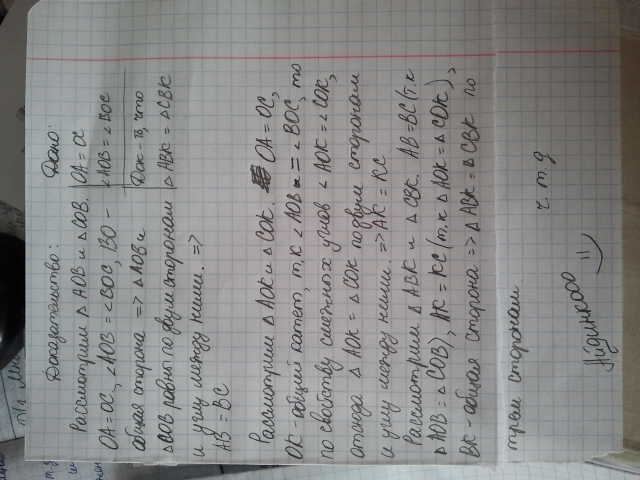 Доказательство: Дано:
Рассмотрим △ AOB и △COB. OA = OC
OA=OC, ∠AOB = ∠BOC, BO - ∠AOB = ∠BOC
общая сторона => △AOB и Док-ть, что
△COB равны по двум сторонам △ABK = △CBK
и углу между ними. =>
AB = BC
Рассмотрим △ AOK и △COK. OA = OC,
OK - общий катет, т.к ∠AOB = ∠BOC, то
по свойству смежных углов ∠AOK = ∠COK,
отсюда △ AOK = △COK по двум сторонам
и углу между ними. => AK = KC
Рассмотрим △ ABK и △ CBK. AB = BC (т.к
△AOB = △COB), AK = KC (т.к △AOK = △COK),
BK - общая сторона => △ABK = △CBK по
трём сторонам.
ч.т.д